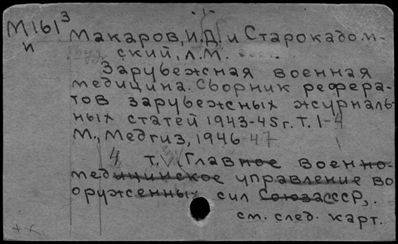 М161³
и
Макаров, И.Д. и Старокадом-
ский, Л.М.
Зарубежная военная
медицина. Сборник рефера-
тов зарубежных журналь-
ных статей 1943-45 г. Т. 1-4
М., Медгиз, 1946-47
4 т. (Главное военно-
медицинское управление во
оруженных сил СоюзаССР).
см. след. карт.